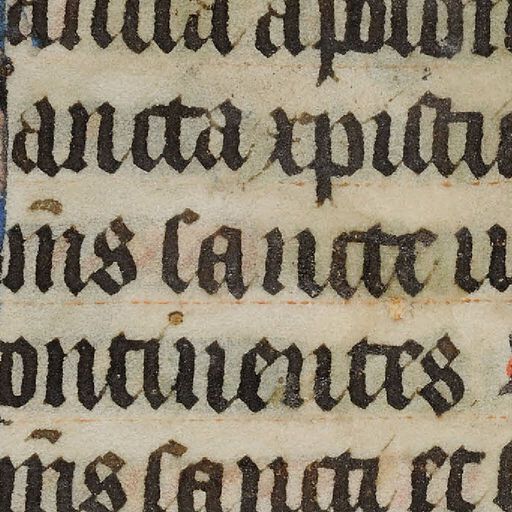 ancta apolon
ancta xpisti
m̄s sancte u
ontinentes
m̄s sancti et